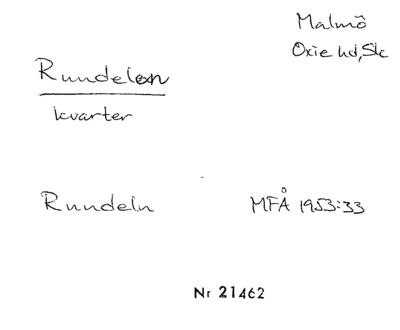 Malmö
Oxie hd, Sk
Rundelen
kvarter
Rundeln MFÅ 1953:33
Nr 21462